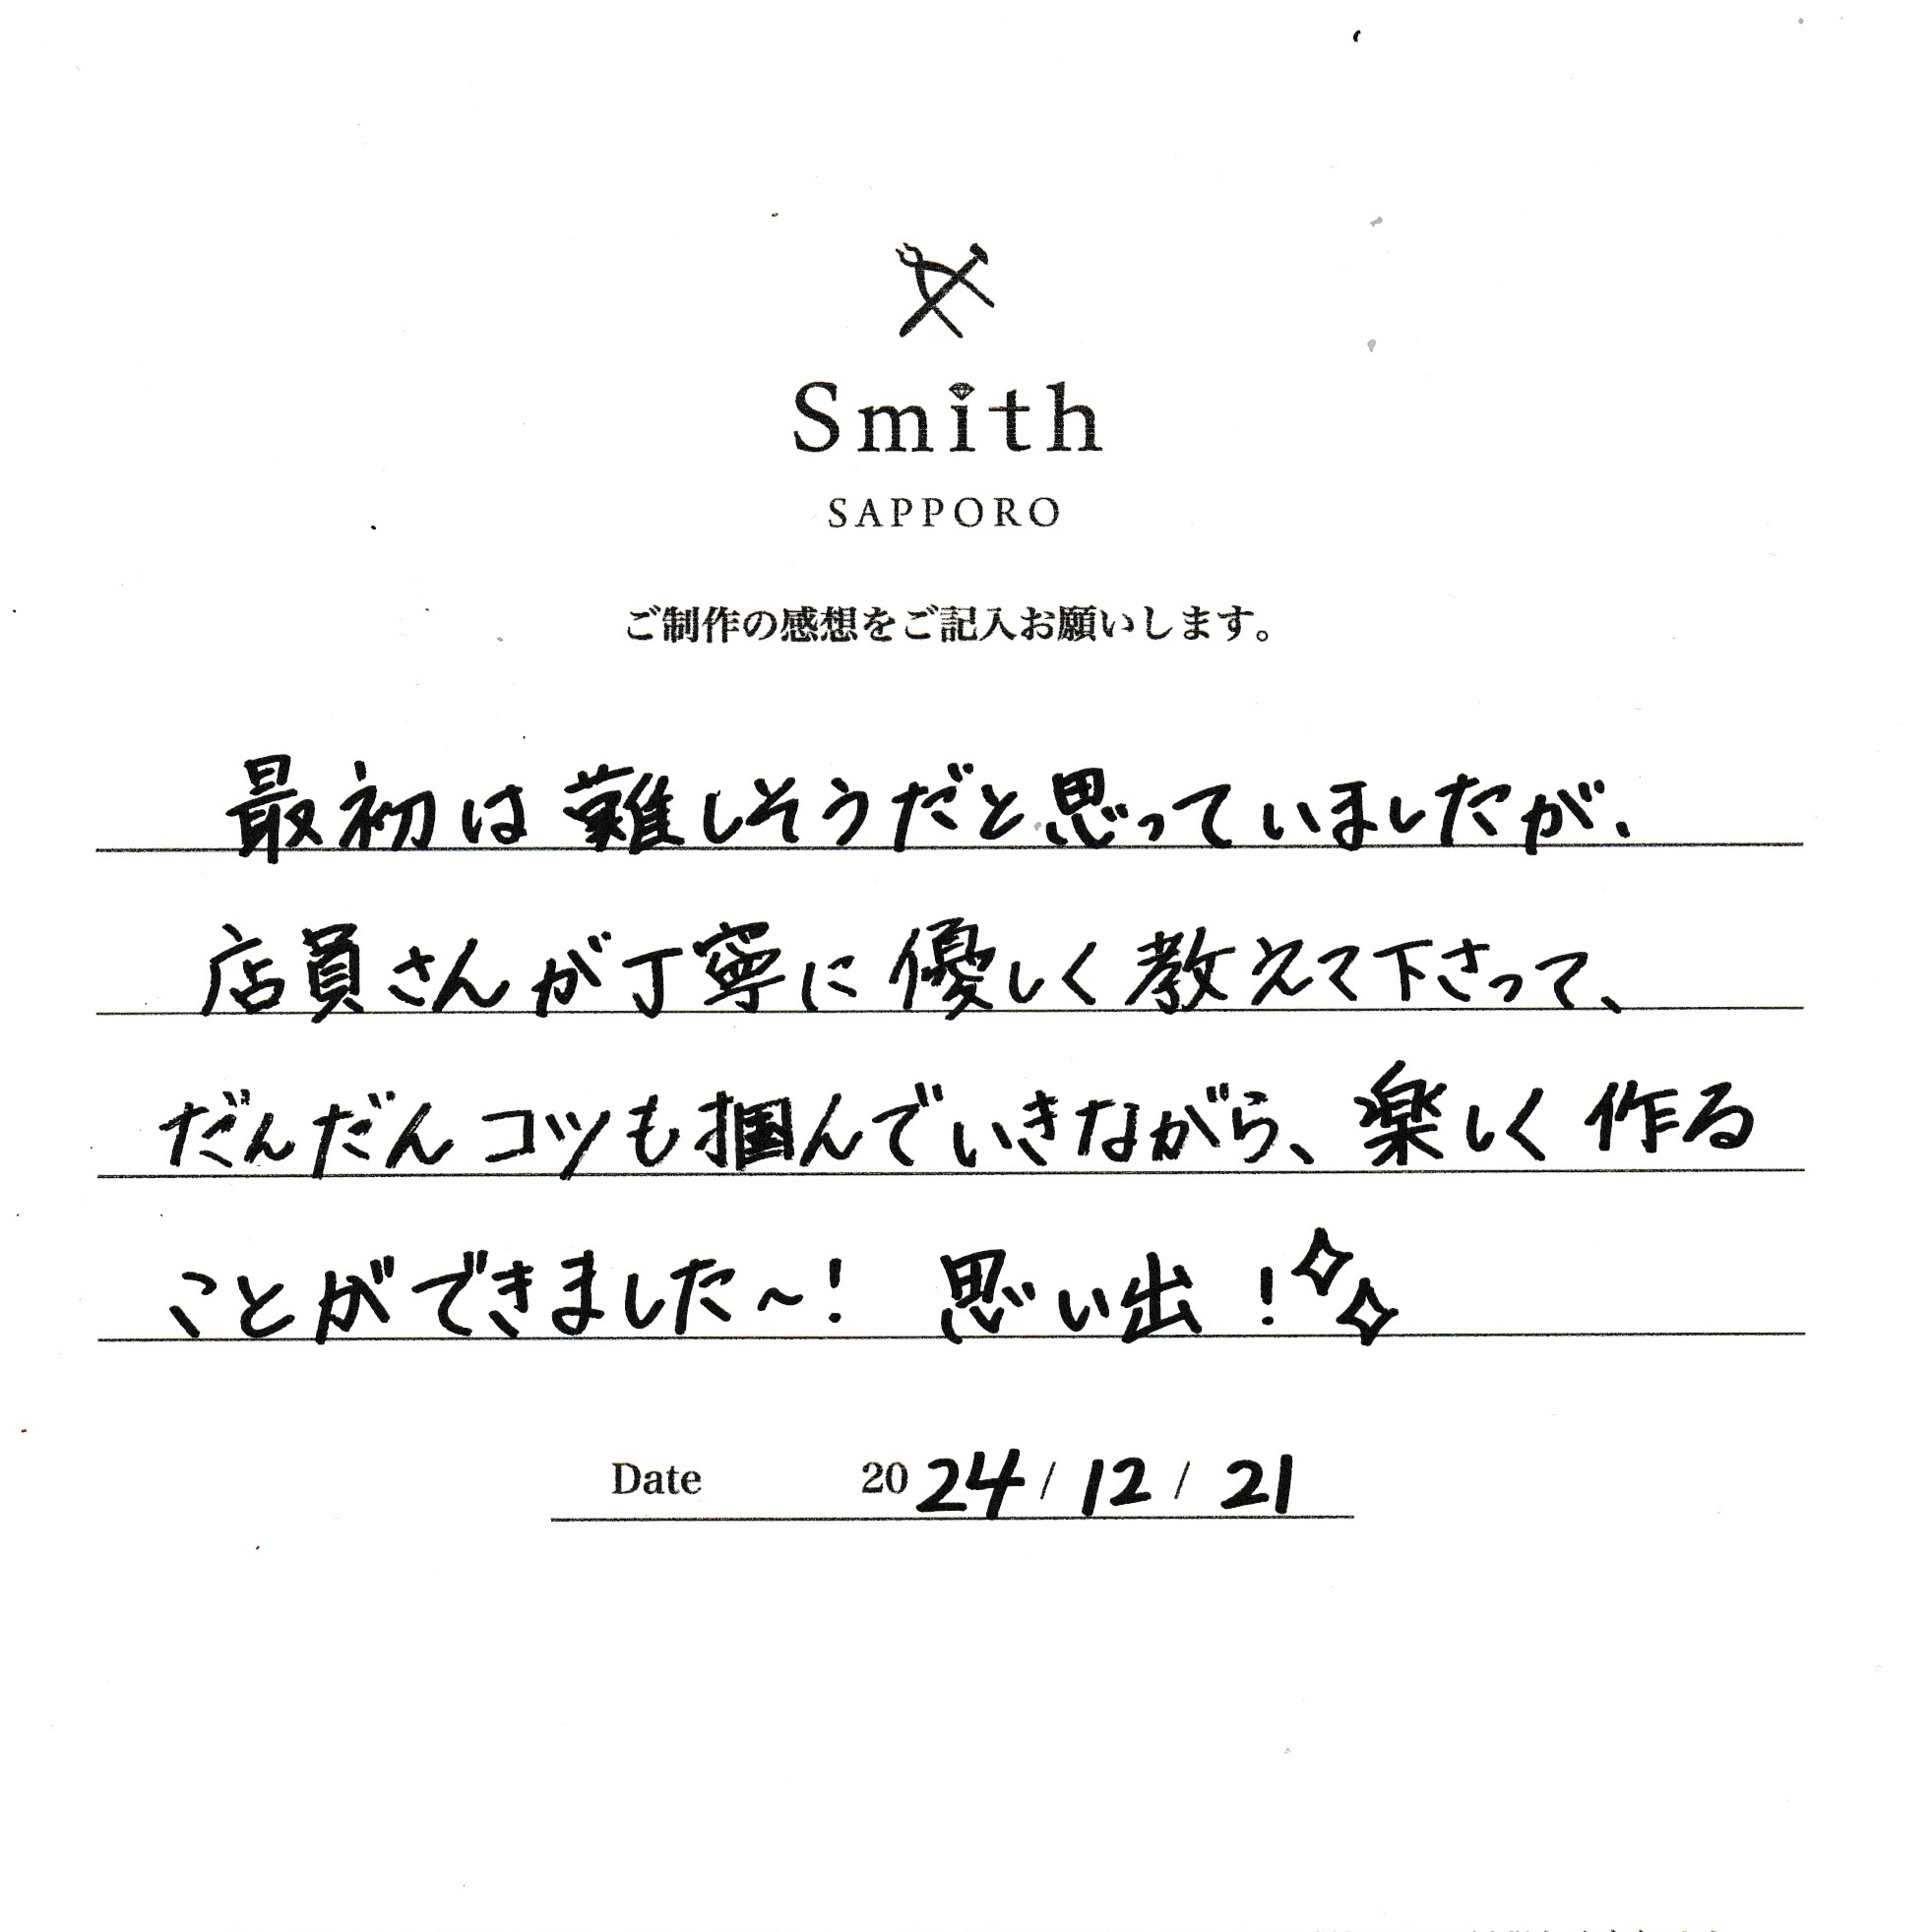 Smith
SAPPORO
ご制作の感想をご記入お願いします。
最初は難しそうだと思っていましたが、
店員さんが丁寧に優しく教えて下さって、
だんだんコツも掴んでいきながら、楽しく作る
ことができました〜! 思い出!✧✧
Date 2024/12/21